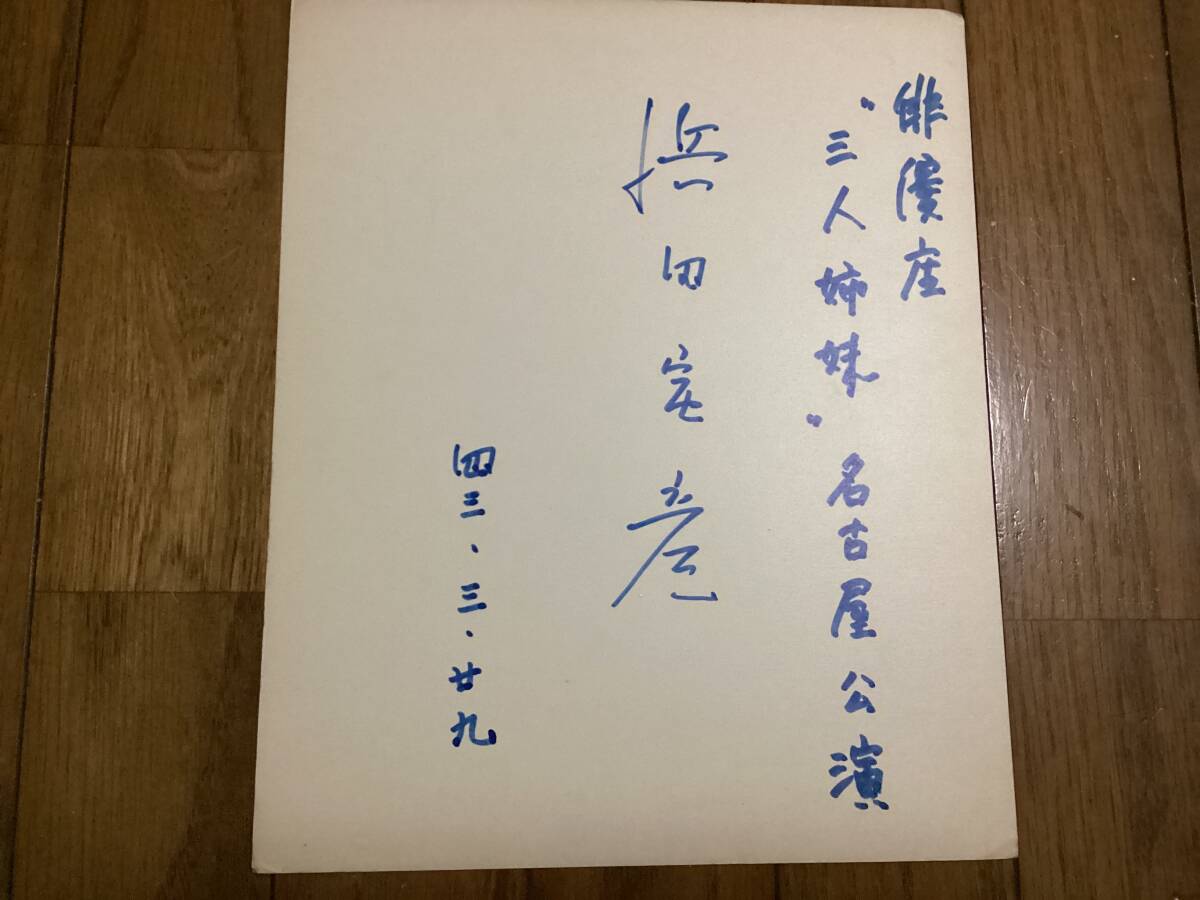 俳優座
"三人姉妹"名古屋公演
浜田寅彦
四三・三・廿九